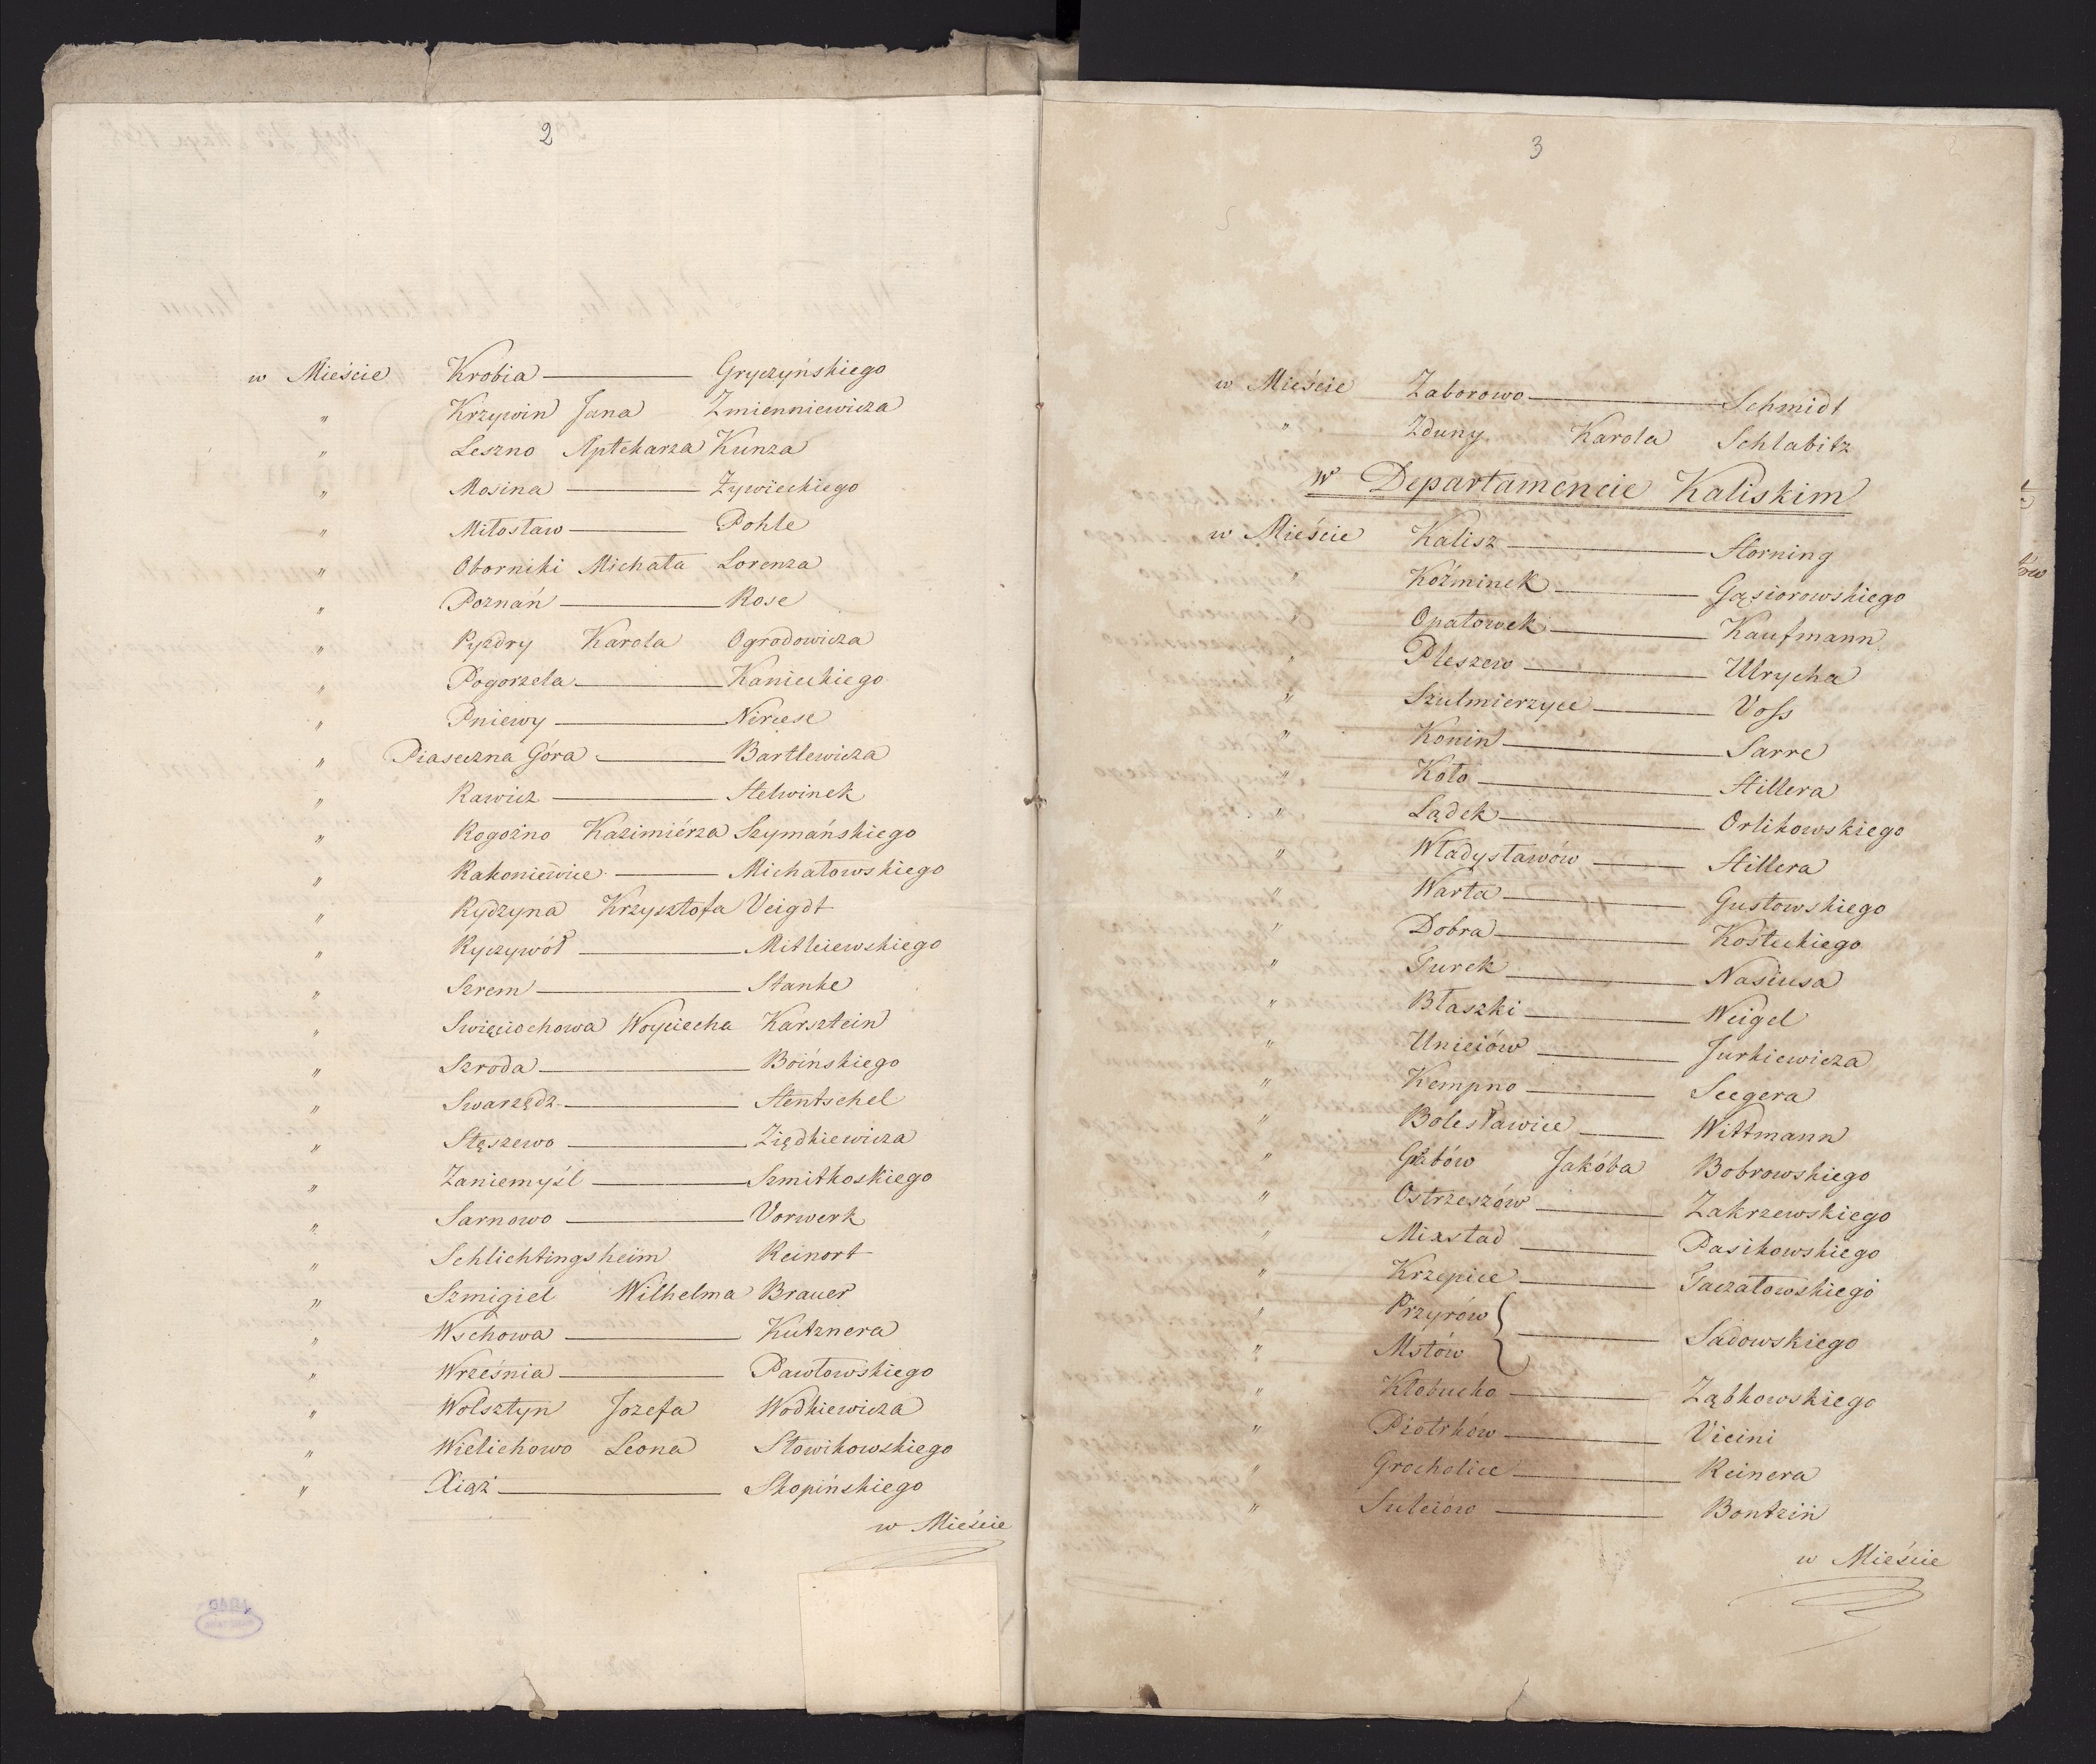 2
w Mieście Krobia — Gryczyńskiego
" Krzywin Jana Zmienniewicza
" Leszno Aptekarza Kunza
" Mosina — Żywieckiego
" Miłosław — Pohle
" Oborniki Michała Lorenza
" Poznań — Rose
" Pyzdry Karola Ogrodowicza
" Pogorzela — Kanieckiego
" Pniewy — Nircese
" Piaseczna Góra — Bartlewicza
" Rawicz — Stelwinek
" Rogoźno Kazimiérza Szymańskiego
" Rakoniewice — Michałowskiego
" Rydzyna Krzysztofa Veigdt
" Ryczywół — Mitlewskiego
" Szrem — Stanke
" Swięciochowa Woyciecha Karsztein
" Szroda — Boińskiego
" Swarzędz — Stentschel
" Stęszewo — Ziędkiewicza
" Zaniemyśl — Szmitkoskiego
" Sarnowo — Vorwerk
" Schlichtingsheim Reinort
" Szmigiel Wilhelma Brauer
" Wschowa — Kutznera
" Września — Pawłowskiego
" Wolsztyn Jozefa Wodkiewicza
" Wielichowo Leona Słowikowskiego
" Xiąż — Skopińskiego
w Mieście
3
w Mieście Zaborowo — Schmidt
" Zduny Karola Schlabitz
w Departamencie Kaliskim
w Mieście Kalisz — Storning
" Koźminek — Gąsiorowskiego
" Opatowek — Kaufmann
" Pleszew — Ulrycha
" Szulmierzyce — Voss
" Konin — Sarre
" Koło — Stillera
" Lądek — Orlikowskiego
" Władysławów — Stillera
" Warta — Gustowskiego
" Dobra — Kosteckiego
" Turek — Nasiusa
" Błaszki — Weigel
" Unieiów — Jurkiewicza
" Kempno — Seegera
" Bolesławice — Wittmann
" Grabów Jakóba Bobrowskiego
" Ostrzeszów — Zakrzewskiego
" Mixstad — Pasikowskiego
" Krzepice — Taczałowskiego
" Przyrów
" Mstów } — Sadowskiego
" Kłobucko — Ząbkowskiego
" Piotrków — Vicini
" Grocholice — Reinera
" Suleiów — Bontzin
w Mieście